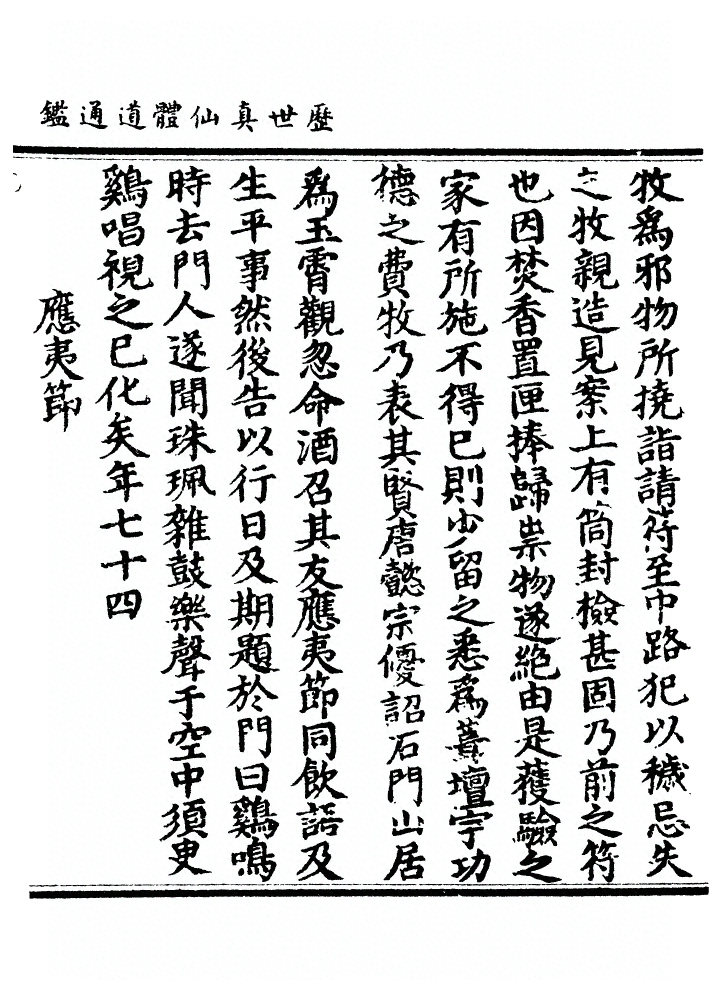 歷世真仙體道通鑑
牧爲邪物所撓詣請符至中路犯以穢忌失
之牧親造見案上有筒封檢甚固乃前之符
也因焚香置匣捧歸祟物遂絕由是獲驗之
家有所施不得已則少留之悉爲葺壇宇功
德之費牧乃表其賢唐懿宗優詔石門山居
爲玉霄觀忽命酒召其友應夷節同飲語及
生平事然後告以行日及期題於門曰鷄鳴
時去門人遂聞珠珮雜鼓樂聲于空中須臾
鷄唱視之已化矣年七十四
應夷節